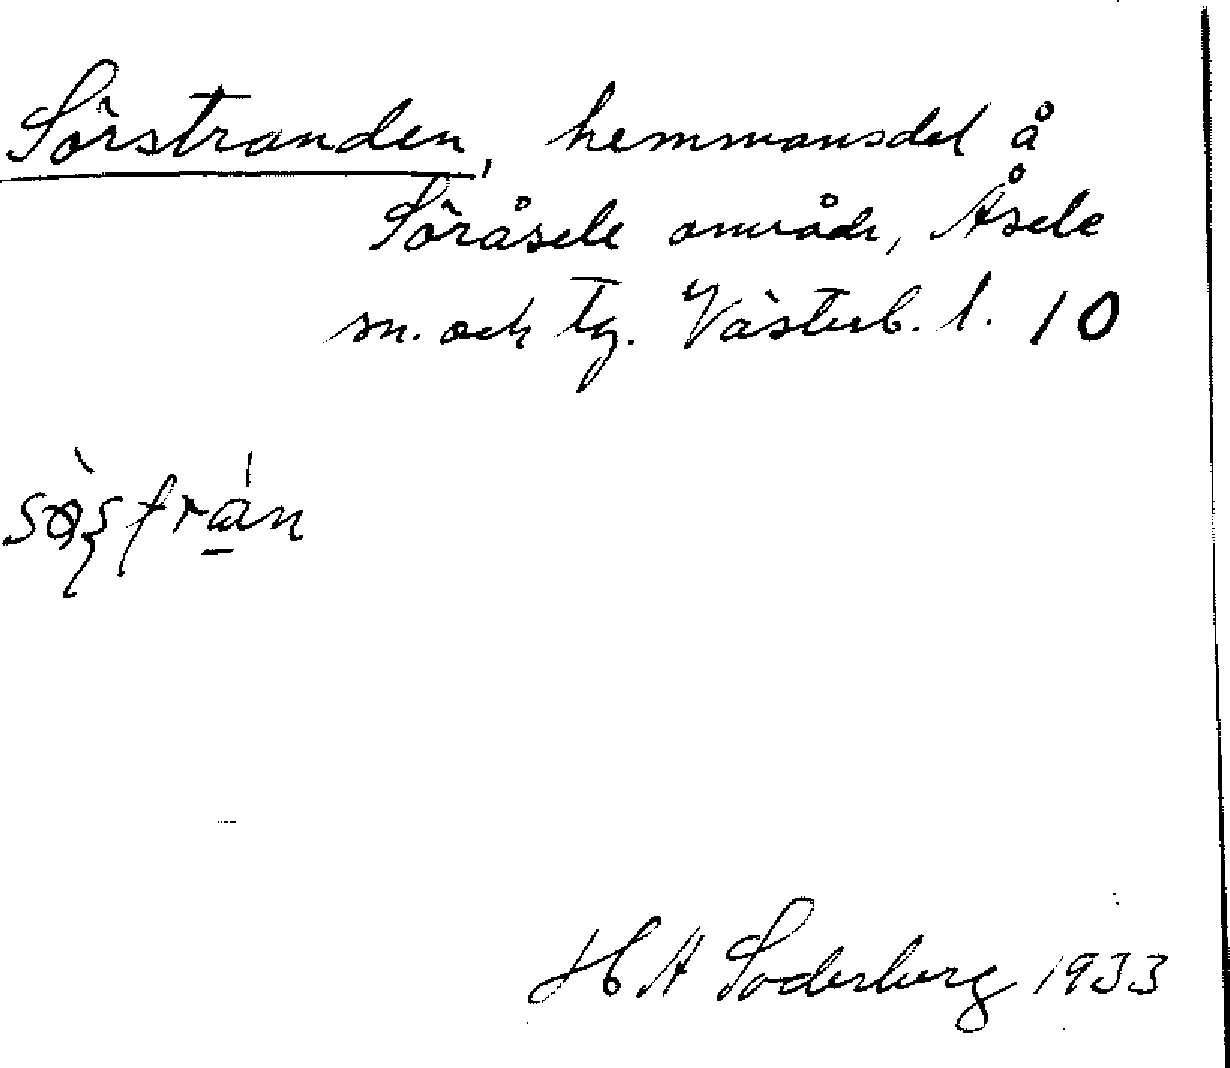 Sörstranden, hemmansdel å
Söråsele område, Åsele
sn. och tg. Västerb. l. 10
H A Söderberg 1933